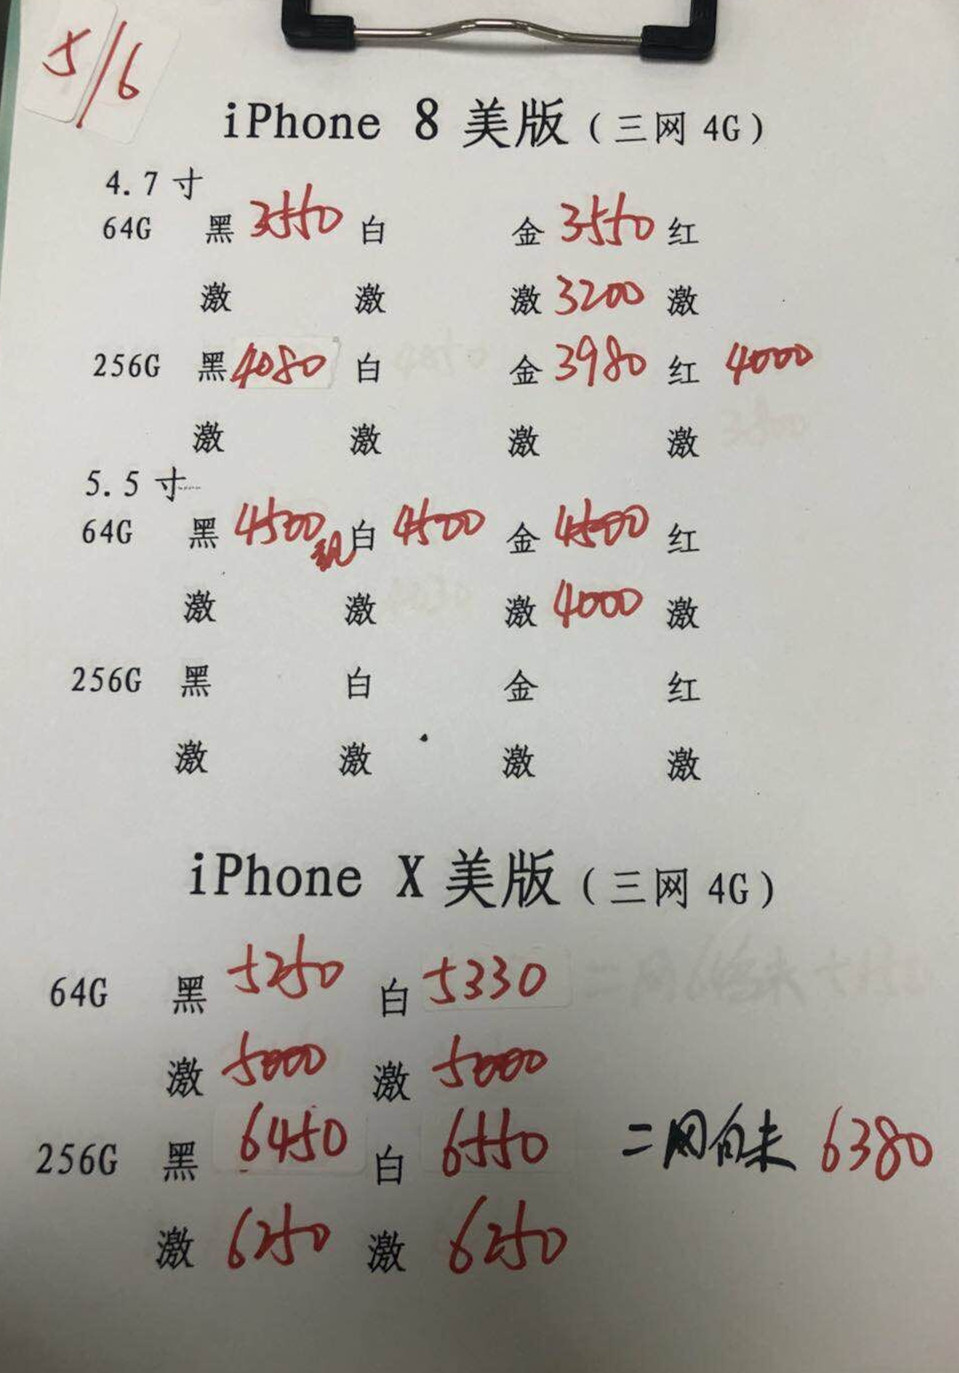 5/6
iPhone 8 美版（三网 4G）
4.7 寸
64G 黑 3550 白 金 3550 红
激 激 激 3200 激
256G 黑 4080 白 金 3980 红 4000
激 激 激 激
5.5 寸
64G 黑 4500 现 白 4500 金 4500 红
激 激 激 4000 激
256G 黑 白 金 红
激 激 激 激
iPhone X 美版（三网 4G）
64G 黑 5250 白 5330
激 5000 激 5000
256G 黑 6450 白 6550 二网白未 6380
激 6250 激 6250